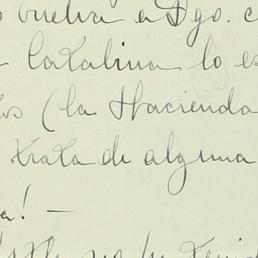 vuelva a Dgo. c
Catalina lo es
(la Hacienda
trata de alguna
a! —